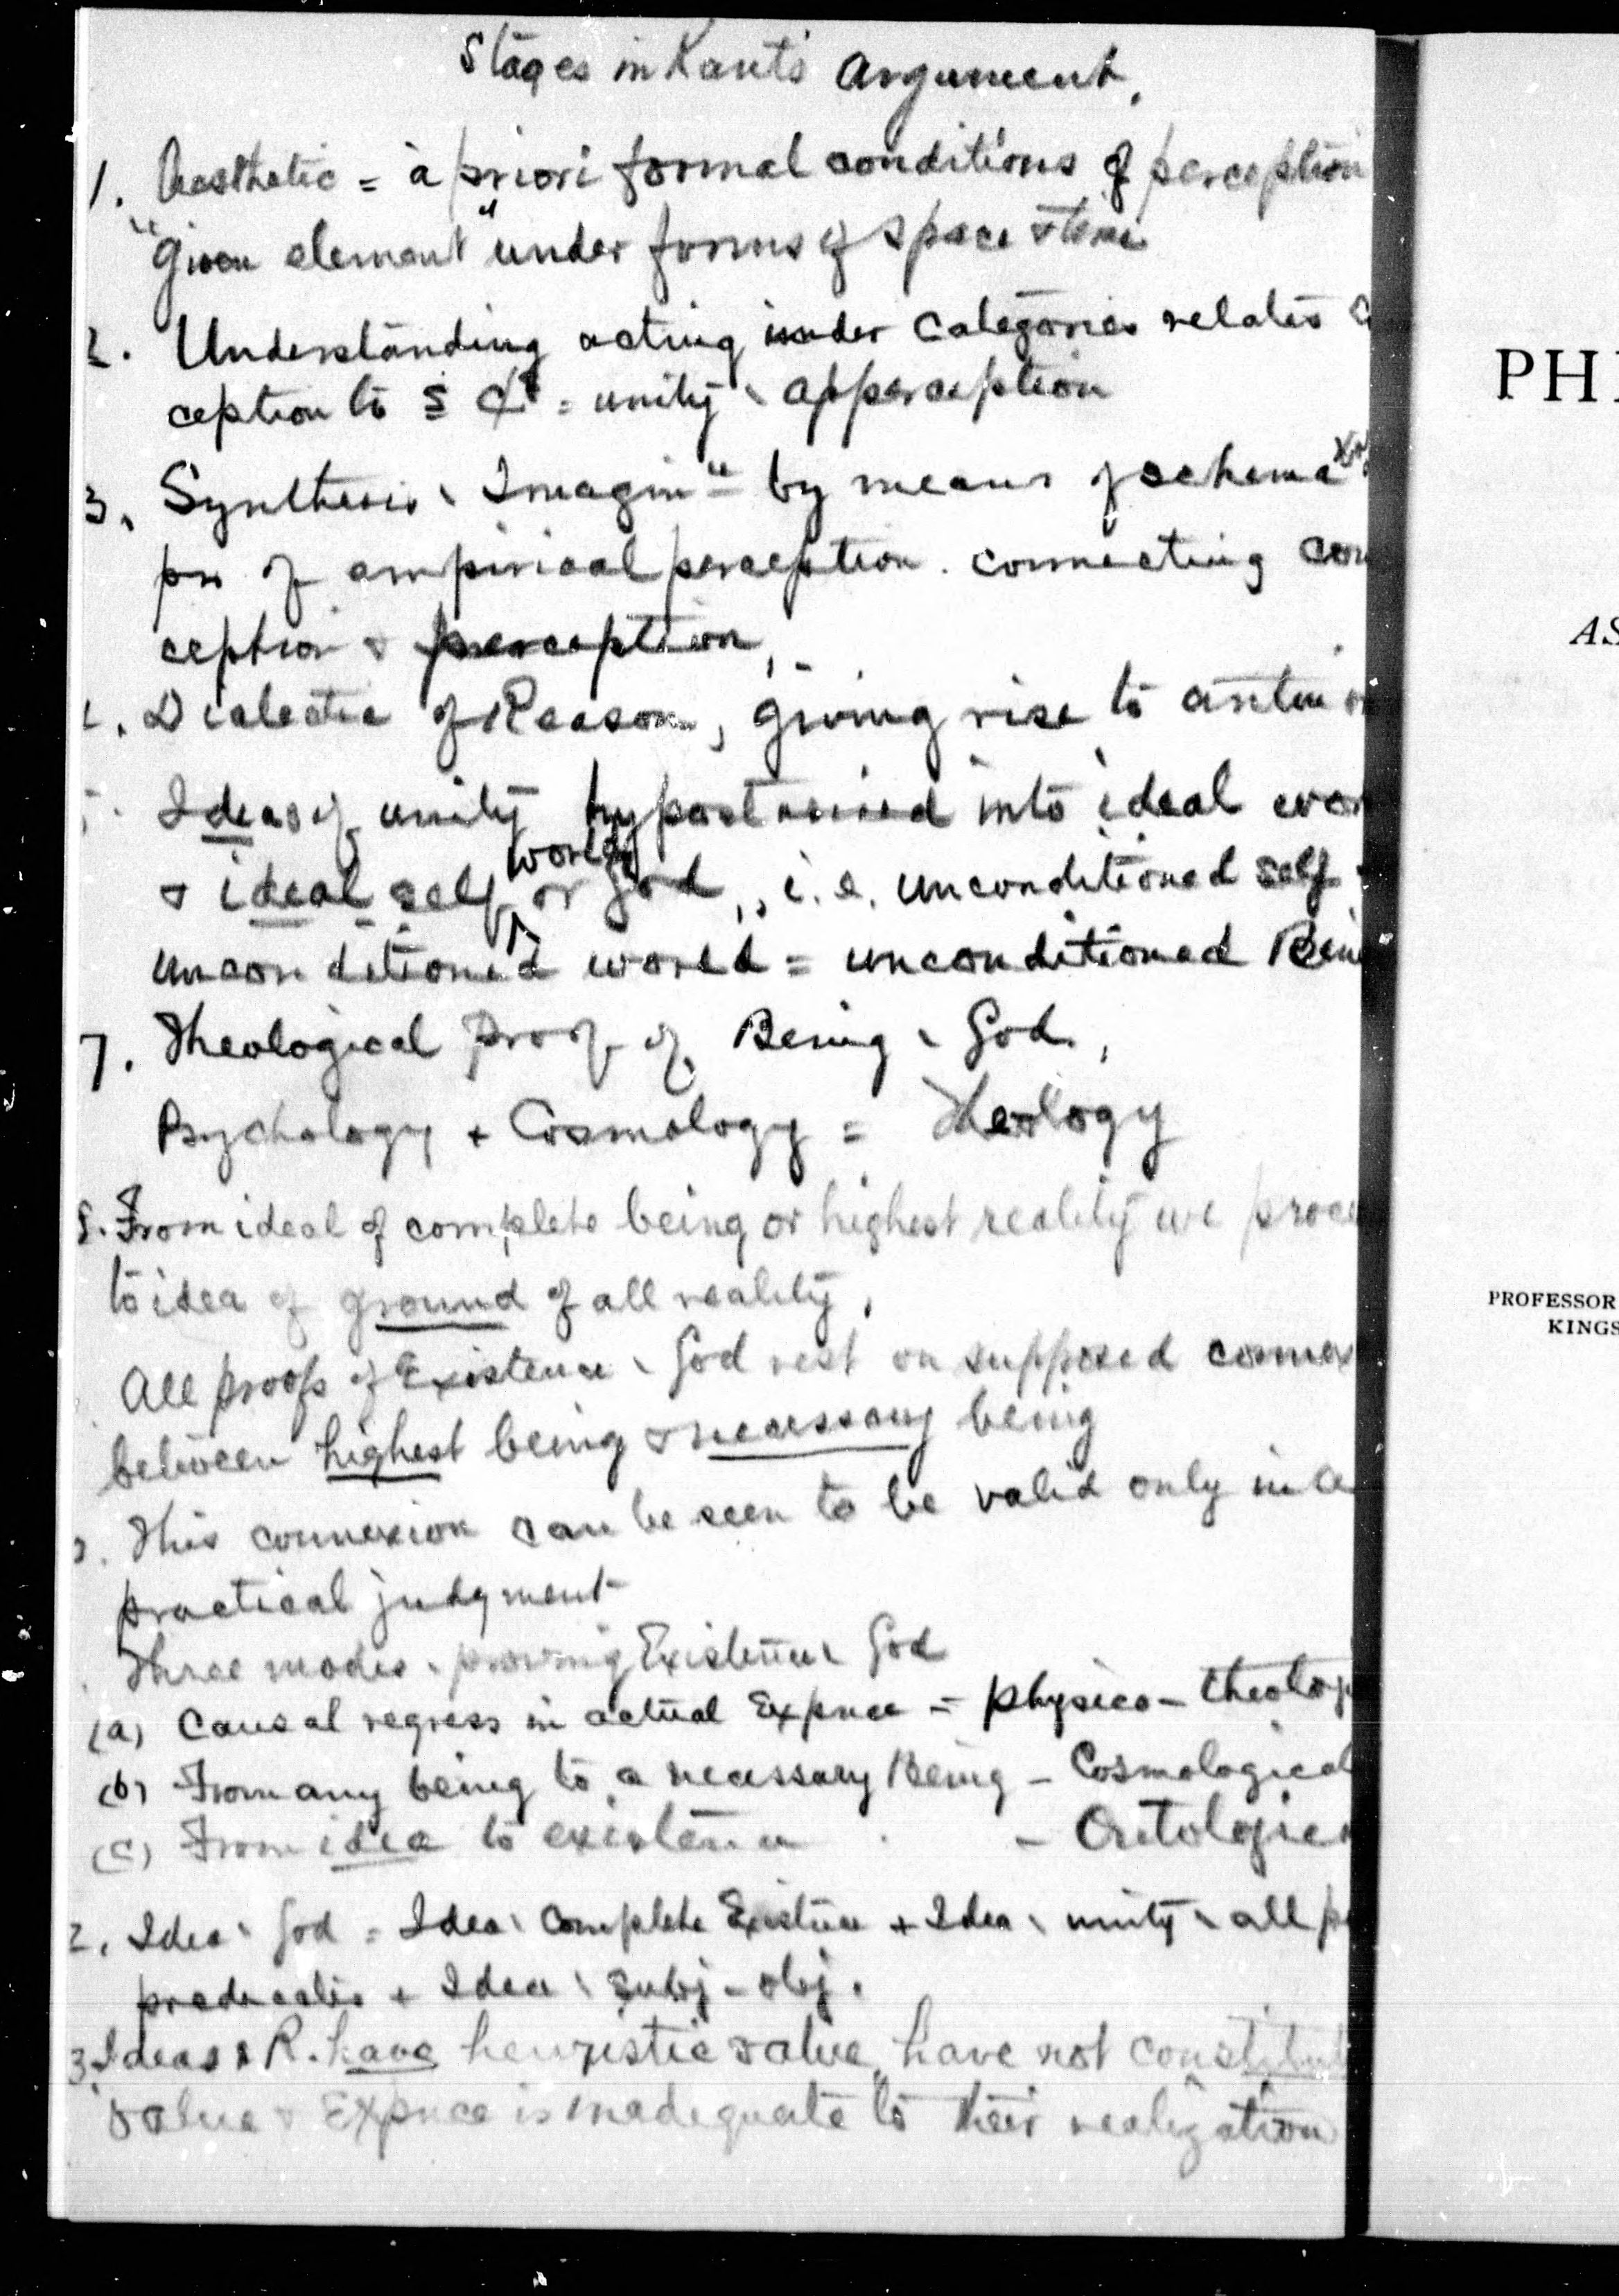 Stages in Kant's argument.
1. Aesthetic = à priori formal conditions of perception
"Given element" under forms of space & time
2. Understanding acting under categories relates
ception to = unity ` apperception
3. Synthesis ` Imagin<sup>n</sup> by means of schema
of empirical perception. connecting con
ception & perception,
. Dialectic of Reason, giving rise to antin
Ideas of unity hypostasised into ideal
world
& ideal self or God, i.e. unconditioned self
unconditioned world = unconditioned Bein
7. Theological proof of Being ` God,
Psychology + Cosmology = Theology
8. From ideal of complete being or highest reality we proce
to idea of ground of all reality,
All proofs of Existence ` God rest on supposed connex
between highest being & necessary being
. This connexion can be seen to be valid only in a
practical judgment
Three modes ` proving Existence ` God
(a) Causal regress in actual Expnce = physico-theolog
(b) From any being to a necessary Being - Cosmological
(c) From idea to existence - Ontologica
2. Idea ` God = Idea ` Complete Existence + Idea ` unity ` all p
predicates + Idea ` subj-obj.
3. Ideas ` R. have heuristic value, have not constitut
value & Expnce is inadequate to their realization
PH
AS
PROFESSOR
KINGS